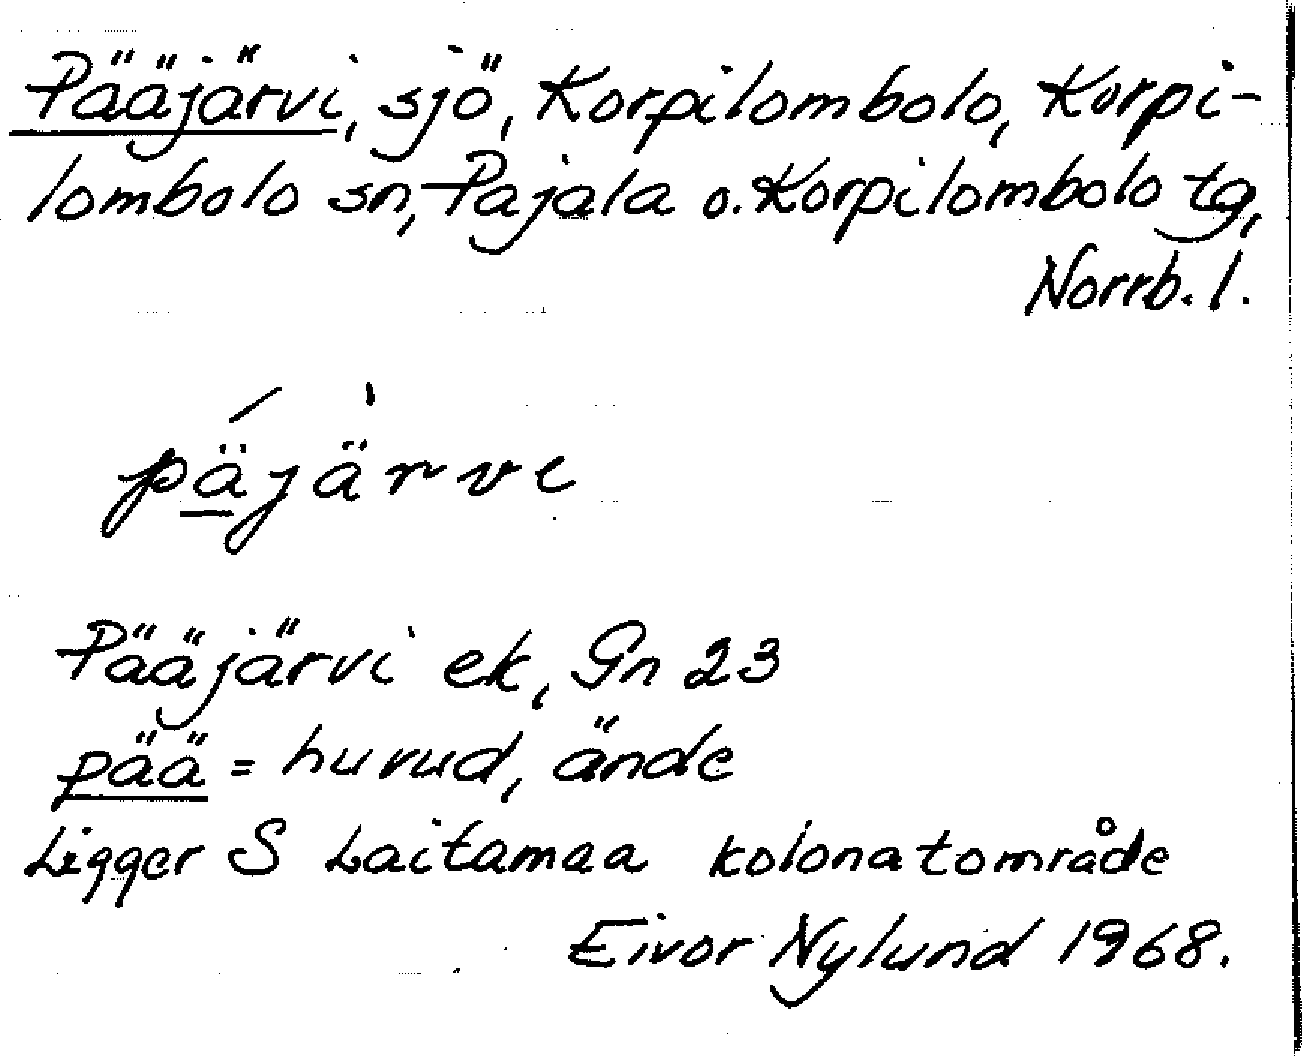 Pääjärvi, sjö, Korpilombolo, Korpi-
lombolo sn, Pajala o. Korpilombolo tg,
Norrb. l.
pä̱́jä̀rvi
Pääjärvi ek, Gn 23
pää = huvud, ände
Ligger S Laitamaa kolonatområde
Eivor Nylund 1968.